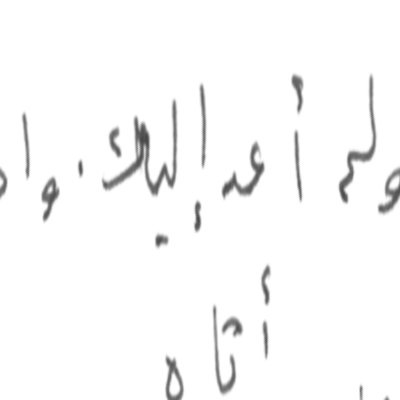 ولم أعد إليك . وا
أتاه